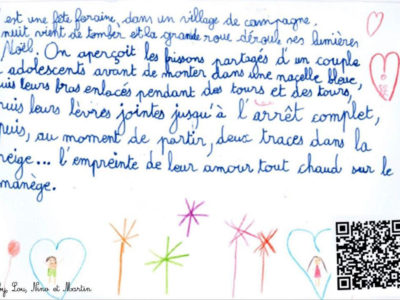 est une fête foraine, dans un village de campagne.
nuit vient de tomber et la grande roue déroule ses lumières
Noël. On aperçoit les frissons partagés d'un couple
adolescents avant de monter dans une nacelle bleue,
uis leurs bras enlacés pendant des tours et des tours,
uis leurs lèvres jointes jusqu'à l'arrêt complet,
puis, au moment de partir, deux traces dans la
neige... l'empreinte de leur amour tout chaud sur le
manège.
by, Lou, Nino et Martin